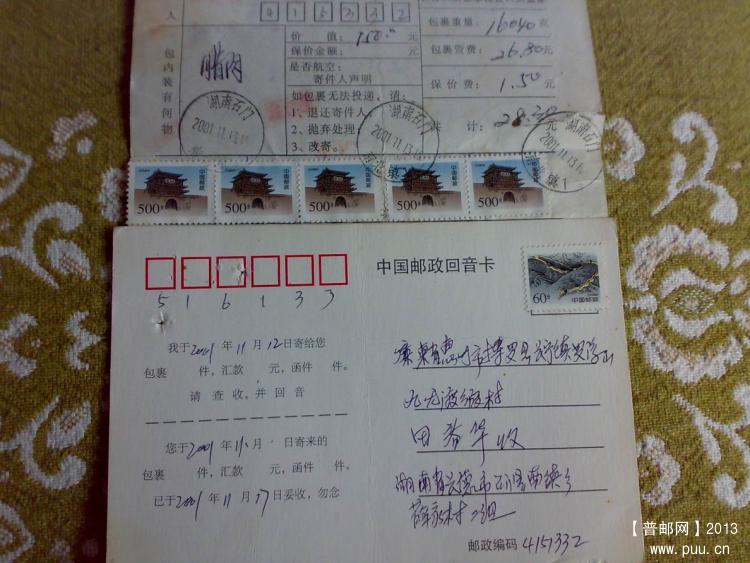 人 415332
包裹重量：16040克
价 值：150.0元
包裹资费 26.80元
保价金额： 元
是否航空：
保价费： 1.50元
寄件人声明
包内装有何物 腊肉
如包裹无法投递，请：
1、退还寄件人；
2、抛弃处理；
3、改寄。
共 计： 元
湖南石门
2001.11.13
湖南石门
2001.11.13
500 中国邮政
500 中国邮政
500 中国邮政
500 中国邮政
500 中国邮政
中国邮政回音卡
60分 中国邮政
5 1 6 1 3 3
我于2001年11月12日寄给您
包裹 件，汇款 元，函件 件。
请 查 收，并 回 音
您于2001年11月 日寄来的
包裹 件，汇款 元，函件 件。
已于2001年11月17日妥收，勿念
广东省惠州市博罗县长宁镇罗浮山
村
田 华 收
湖南省常德市石门县南镇乡
村 组
邮政编码 415332
【普邮网】2013
www.puu.cn